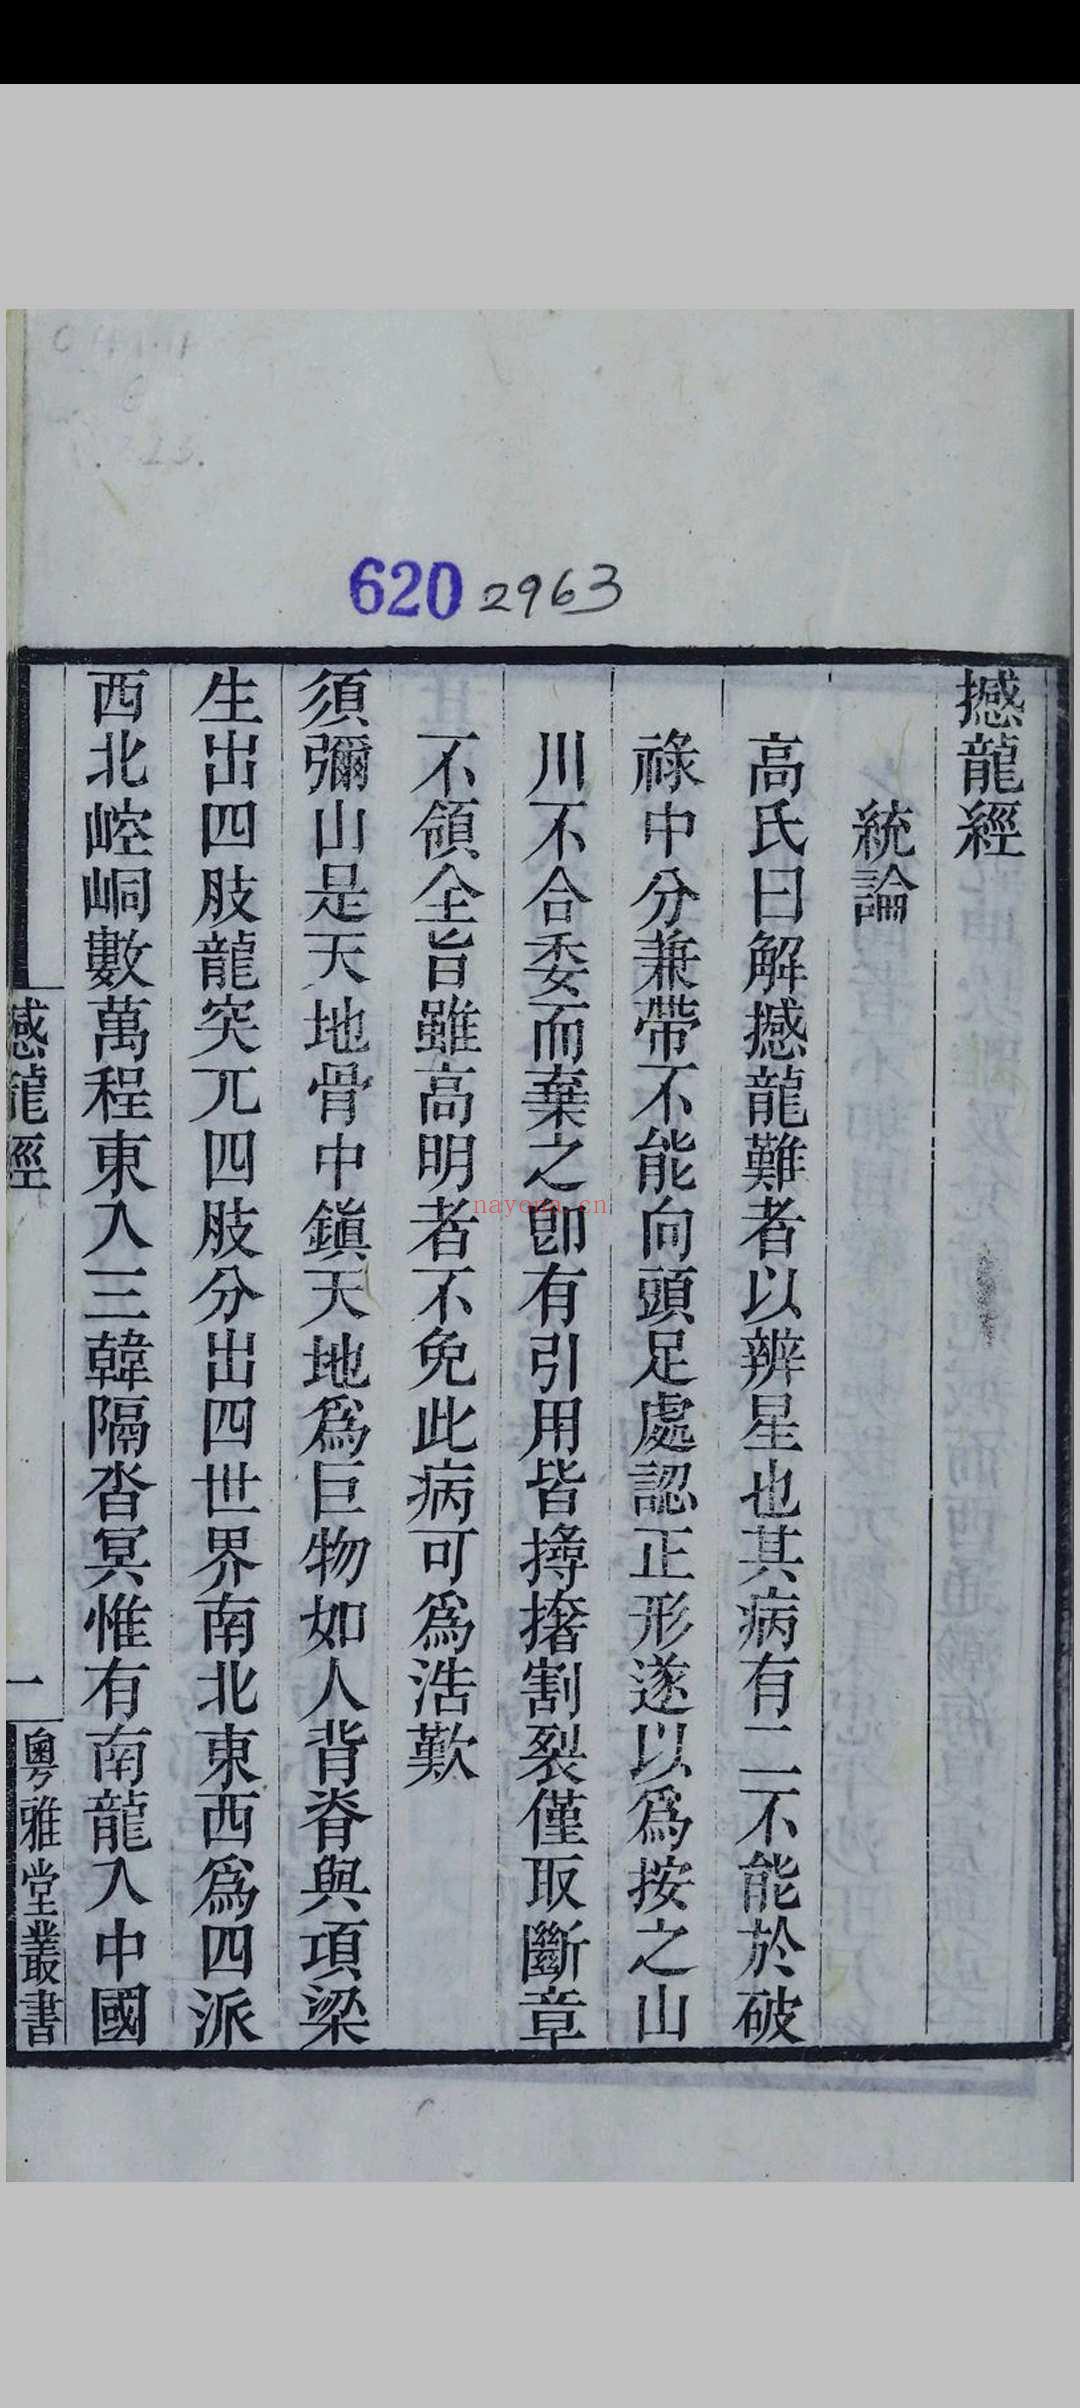 620 2963
撼龍經
統論
高氏曰解撼龍難者以辨星也其病有二不能於破
祿中分兼帶不能向頭足處認正形遂以為按之山
川不合委而棄之卽有引用皆撏撦割裂僅取斷章
不領全旨雖高明者不免此病可為浩歎
須彌山是天地骨中鎮天地為巨物如人背脊與項梁
生出四肢龍突兀四肢分出四世界南北東西為四派
西北崆峒數萬程東入三韓隔杳冥惟有南龍入中國
撼龍經
一
粵雅堂叢書
nayona.cn